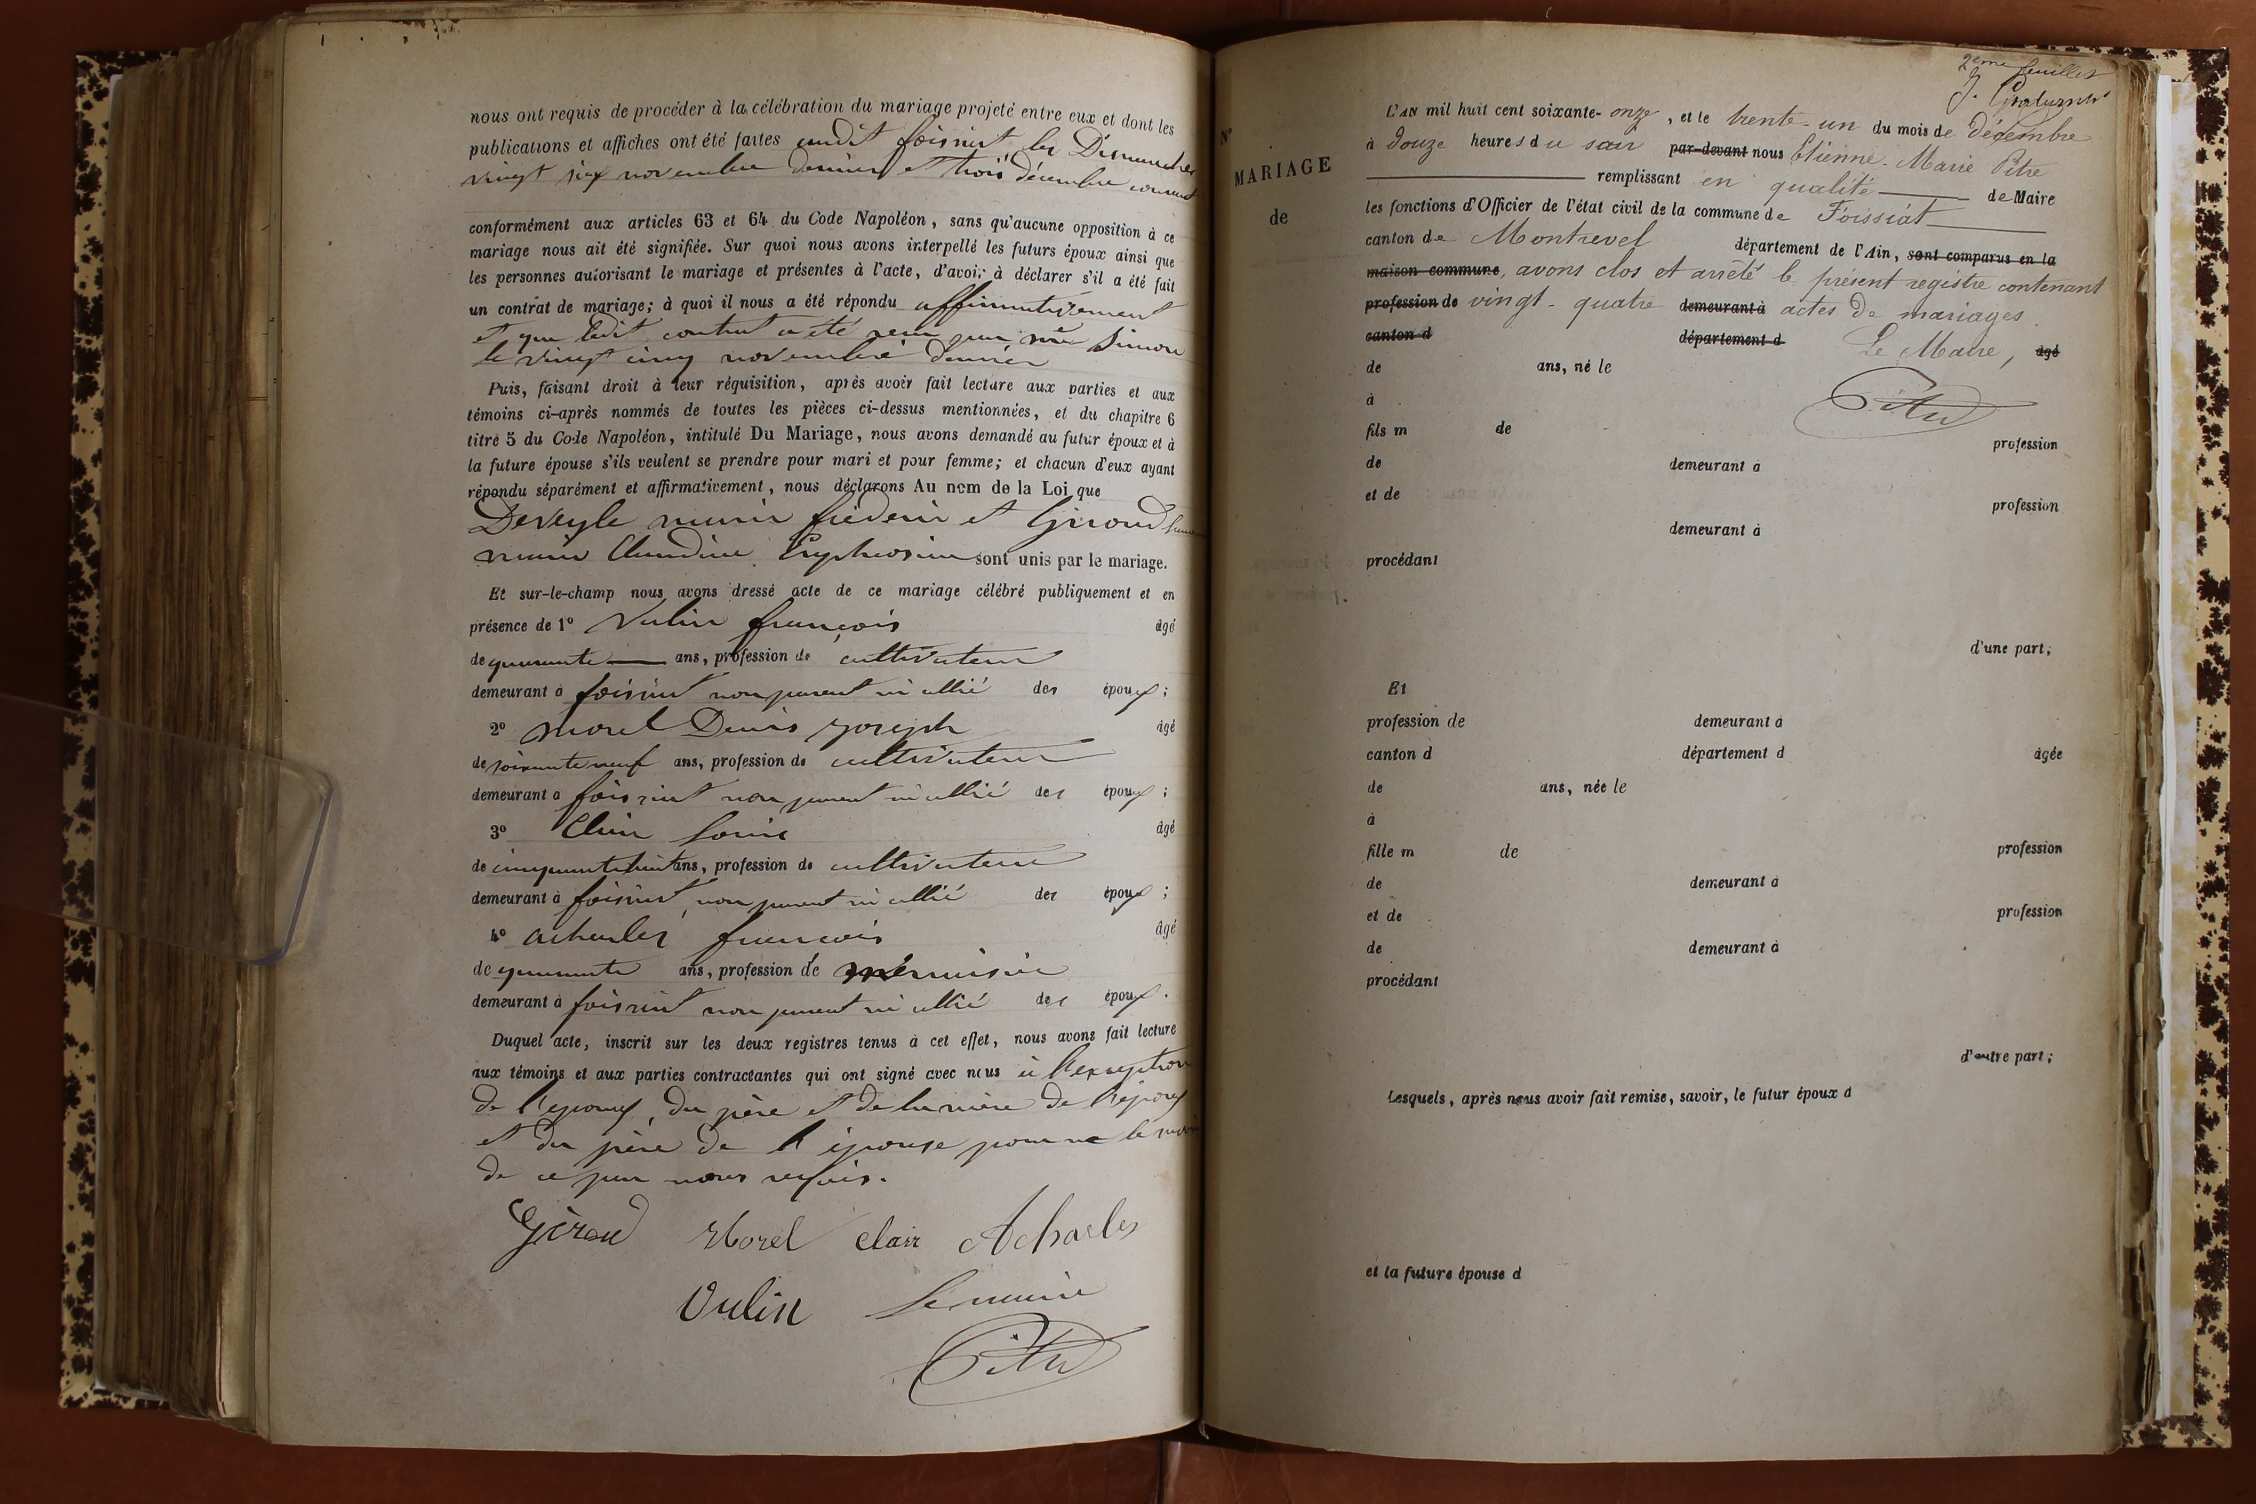 nous ont requis de procéder à la célébration du mariage projeté entre eux et dont les
publications et affiches ont été faites audit foissiat les Dimanches
vingt six novembre dernier et trois décembre courant
conformément aux articles 63 et 64 du Code Napoléon, sans qu'aucune opposition à ce
mariage nous ait été signifiée. Sur quoi nous avons interpellé les futurs époux ainsi que
les personnes autorisant le mariage et présentes à l'acte, d'avoir à déclarer s'il a été fait
un contrat de mariage; à quoi il nous a été répondu affirmativement
et que ledit contrat a été reçu par me Simon
le vingt cinq novembre dernier
Puis, faisant droit à leur réquisition, après avoir fait lecture aux parties et aux
témoins ci-après nommés de toutes les pièces ci-dessus mentionnées, et du chapitre 6
titre 5 du Code Napoléon, intitulé Du Mariage, nous avons demandé au futur époux et à
la future épouse s'ils veulent se prendre pour mari et pour femme; et chacun d'eux ayant
répondu séparément et affirmativement, nous déclarons Au nom de la Loi que
Deveyle marie fréderic et Giroud
marie Claudine Euphrosine sont unis par le mariage.
Et sur-le-champ nous avons dressé acte de ce mariage célébré publiquement et en
présence de 1º Vulin françois âgé
de quarante ans, profession de cultivateur
demeurant à foissiat non parent ni allié des époux;
2º morel Denis joseph âgé
de soixante neuf ans, profession de cultivateur
demeurant à foissiat non parent ni allié des époux;
3º Clair Louis âgé
de cinquante huit ans, profession de cultivateur
demeurant à foissiat, non parent ni allié des époux;
4º acharles françois âgé
de quarante ans, profession de menuisier
demeurant à foissiat non parent ni allié des époux.
Duquel acte, inscrit sur les deux registres tenus à cet effet, nous avons fait lecture
aux témoins et aux parties contractantes qui ont signé avec nous à l'exception
de l'epoux, du père et de la mère de l'époux
et du père de l'épouse pour ne le savoir
de ce par nous requis.
Giroud Morel Clair Acharles
Vulin Le maire
Pitre
2ème feuillet
Nº
MARIAGE
de
L'AN mil huit cent soixante-onze, et le trente-un du mois de décembre
à douze heures du soir par-devant nous Etienne-Marie Pitre
remplissant en qualité de Maire
les fonctions d'Officier de l'état civil de la commune de Foissiat
canton de Montrevel département de l'Ain, sont comparus en la
maison commune, avons clos et arrêté le présent registre contenant
profession de vingt-quatre demeurant à actes de mariages.
canton d département d Le Maire, âgé
de ans, né le
à Pitre
fils m de
profession
de demeurant à
et de
profession
demeurant à
procédant
d'une part;
Et
profession de demeurant à
canton d département d âgée
de ans, née le
à
fille m de profession
de demeurant à
et de profession
de demeurant à
procédant
d'autre part;
Lesquels, après nous avoir fait remise, savoir, le futur époux d
et la future épouse d